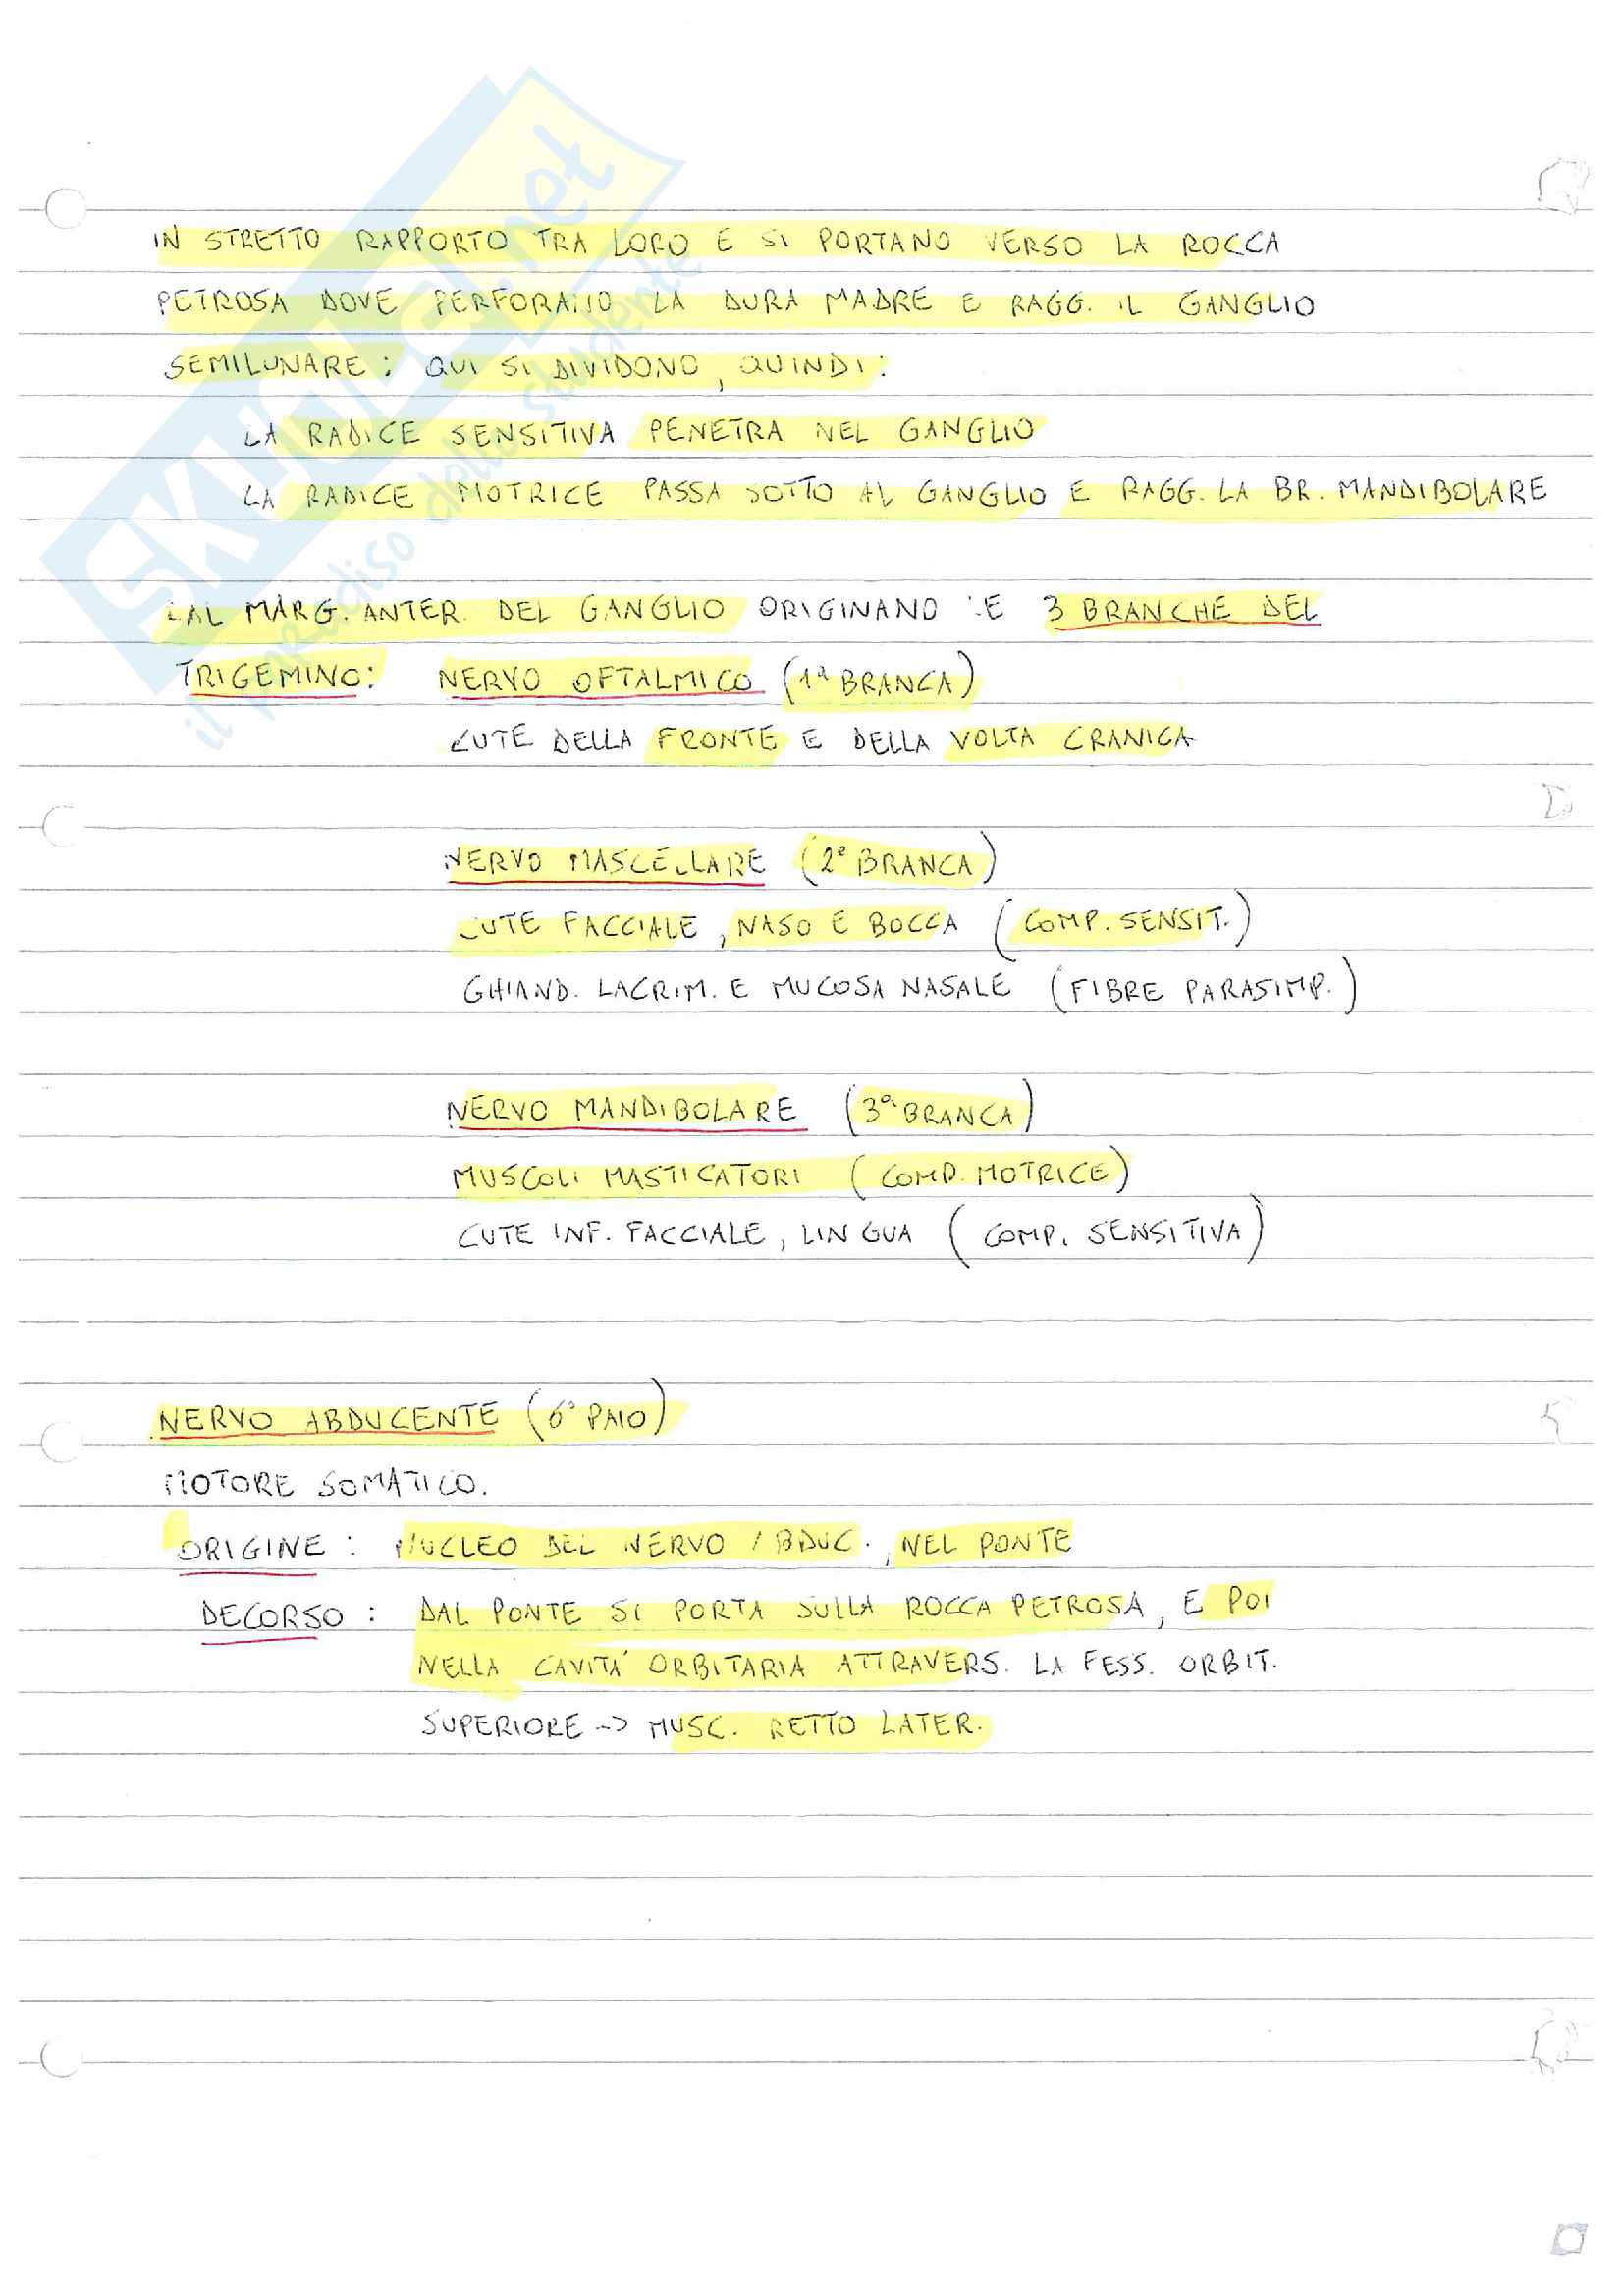 IN STRETTO RAPPORTO TRA LORO E SI PORTANO VERSO LA ROCCA
PETROSA DOVE PERFORANO LA DURA MADRE E RAGG. IL GANGLIO
SEMILUNARE: QUI SI DIVIDONO, QUINDI:
LA RADICE SENSITIVA PENETRA NEL GANGLIO
LA RADICE MOTRICE PASSA SOTTO AL GANGLIO E RAGG. LA BR. MANDIBOLARE
DAL MARG. ANTER. DEL GANGLIO ORIGINANO LE 3 BRANCHE DEL
TRIGEMINO: NERVO OFTALMICO (1ª BRANCA)
CUTE DELLA FRONTE E DELLA VOLTA CRANICA
NERVO MASCELLARE (2ª BRANCA)
CUTE FACCIALE, NASO E BOCCA (COMP. SENSIT.)
GHIAND. LACRIM. E MUCOSA NASALE (FIBRE PARASIMP.)
NERVO MANDIBOLARE (3ª BRANCA)
MUSCOLI MASTICATORI (COMP. MOTRICE)
CUTE INF. FACCIALE, LINGUA (COMP. SENSITIVA)
NERVO ABDUCENTE (6° PAIO)
MOTORE SOMATICO.
ORIGINE: NUCLEO DEL NERVO ABDUC., NEL PONTE
DECORSO: DAL PONTE SI PORTA SULLA ROCCA PETROSA, E POI
NELLA CAVITA' ORBITARIA ATTRAVERS. LA FESS. ORBIT.
SUPERIORE -> MUSC. RETTO LATER.
SKUOLA.net
il paradiso dello studente